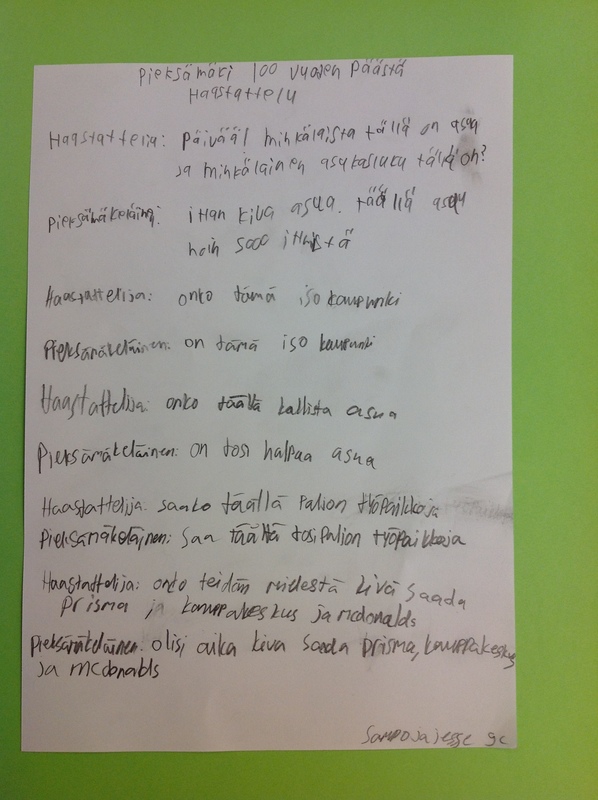 Pieksämäki 100 vuosen päästä
Haastattelu
Haastattelia: Päivääl minkälaista tällä on asua
ja minkälainen asukasluku tälä on?
Pieksämäkeläinen: ihan kiva asua. täällä asuu
noin 5000 ihmistä
Haastattelija: onko tämä iso kaupunki
Pieksämäkeläinen: on tämä iso kaupunki
Haastattelija: onko täällä kallista asua
Pieksämäkeläinen: on tosi halpaa asua
Haastattelija: saako täällä paljon työpaikkoja
Pieksämäkeläinen: saa täältä tosi paljon työpaikkoja
Haastattelija: onko teidän mielestä kivä saada
prisma ja kauppakeskus ja mcdonalds
Pieksämäkeläinen: olisi aika kiva saada prisma, kauppakeskus
ja mcdonalds
Sampo ja jesse 9c